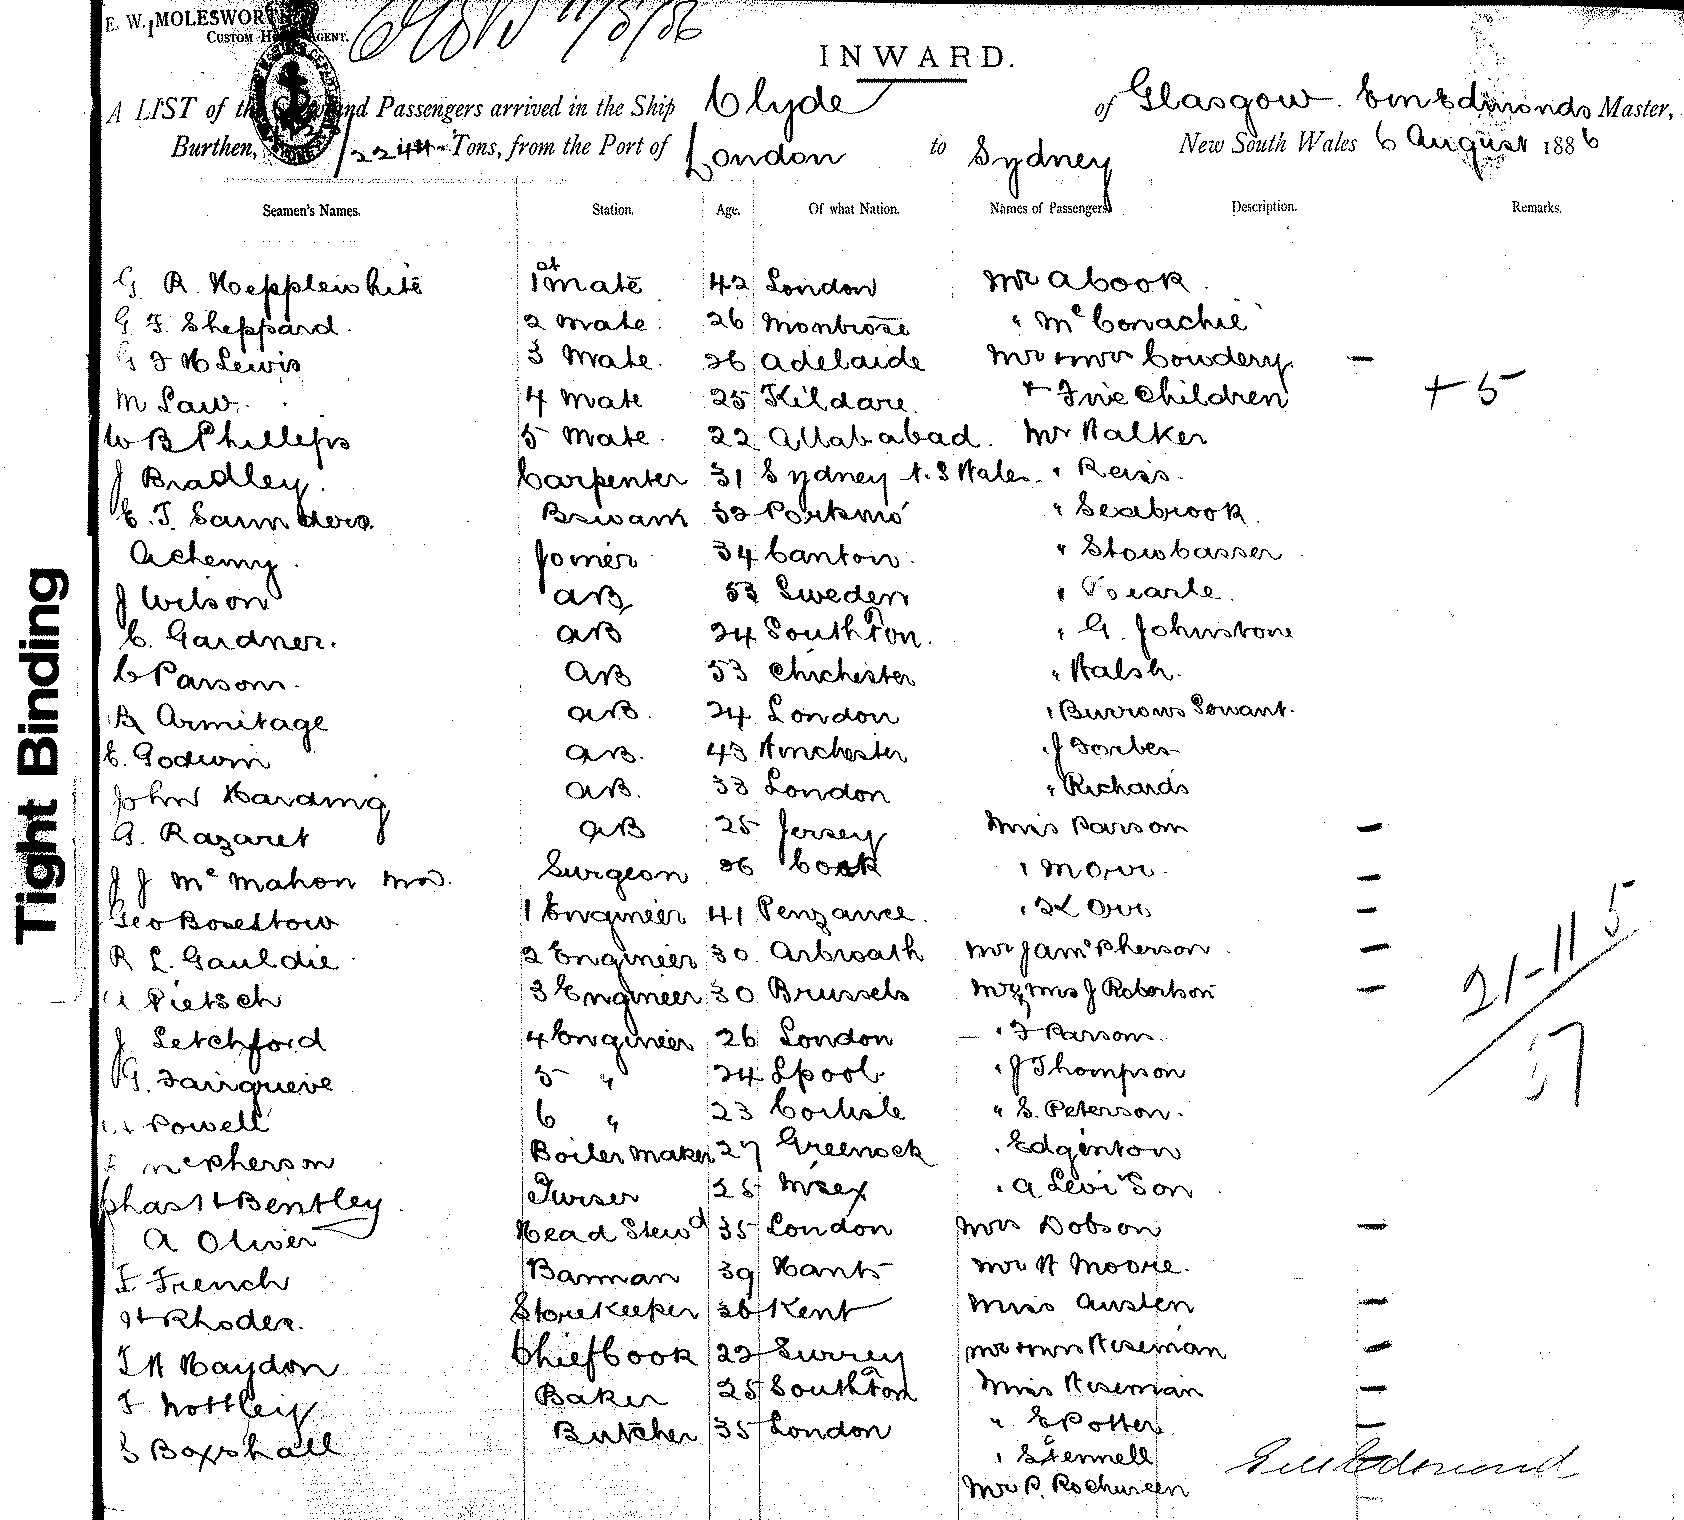 E. W. MOLESWORTH
CUSTOM HOUSE AGENT.
11/8/86
INWARD.
A LIST of the and Passengers arrived in the Ship Clyde of Glasgow Edmonds Master,
Burthen, 2244 Tons, from the Port of London to Sydney New South Wales 6 August 1886
Seamen's Names. Station. Age. Of what Nation. Names of Passengers. Description. Remarks.
G R Hepplewhite 1st Mate 42 London Mr A Cook
G F Sheppard. 2 Mate. 26 Montrose " McConachie
G F H Lewis 3 Mate. 26 Adelaide Mr & Mrs Cowdery —
M Law. 4 Mate 25 Kildare + Five Children + 5
W B Phillips 5 Mate. 22 Allahabad. Mr Walker
J Bradley. Carpenter 31 Sydney N. S Wales. " Reiss.
E. T. Saunders Bswain 52 Portsmo' " Seabrook.
Achemy. Joiner 34 Canton. " Stowbasser
J Wilson AB 53 Sweden " Searle.
C. Gardner. AB 24 Southton. " G. Johnstone
C Parsons. AB 53 Chichester " Walsh.
R Armitage AB. 24 London " Burrows Servant.
E. Godwin AB. 43 Winchester " J Forbes
John Harding AB. 33 London " Richards
G. Razaret AB 25 Jersey Miss Parson —
J J McMahon MD. Surgeon 26 Cork " —
Geo Bosestow 1 Engineer 41 Penzance. " Orr —
R L. Gauldie 2 Engineer 30 Arbroath Mr J A McPherson —
A Pietsch 3 Engineer 30 Brussels Mr & Mrs J Robertson —
J Letchford 4 Engineer 26 London " F Parsons.
G. Fairgrieve 5 " 24 Lpool " J Thompson
H Powell 6 " 23 Carlisle " S. Peterson.
McPherson Boiler Maker 27 Greenock " Edginton
Chas H Bentley Purser 25 Msex " A Levi Son
A Oliver Head Stewd 35 London Mrs Dobson —
F French Barman 39 Hants Mr H Moore.
H Rhodes. Storekeeper 26 Kent Miss Austen —
T H Haydon Chief Cook 22 Surrey Mr & Mrs Wiseman —
F Nottley Baker 25 Southton Miss Wiseman —
S Boxshall Butcher 35 London " E Potter —
" S Fennell
Mr P.
21-11 5
57
Tight Binding